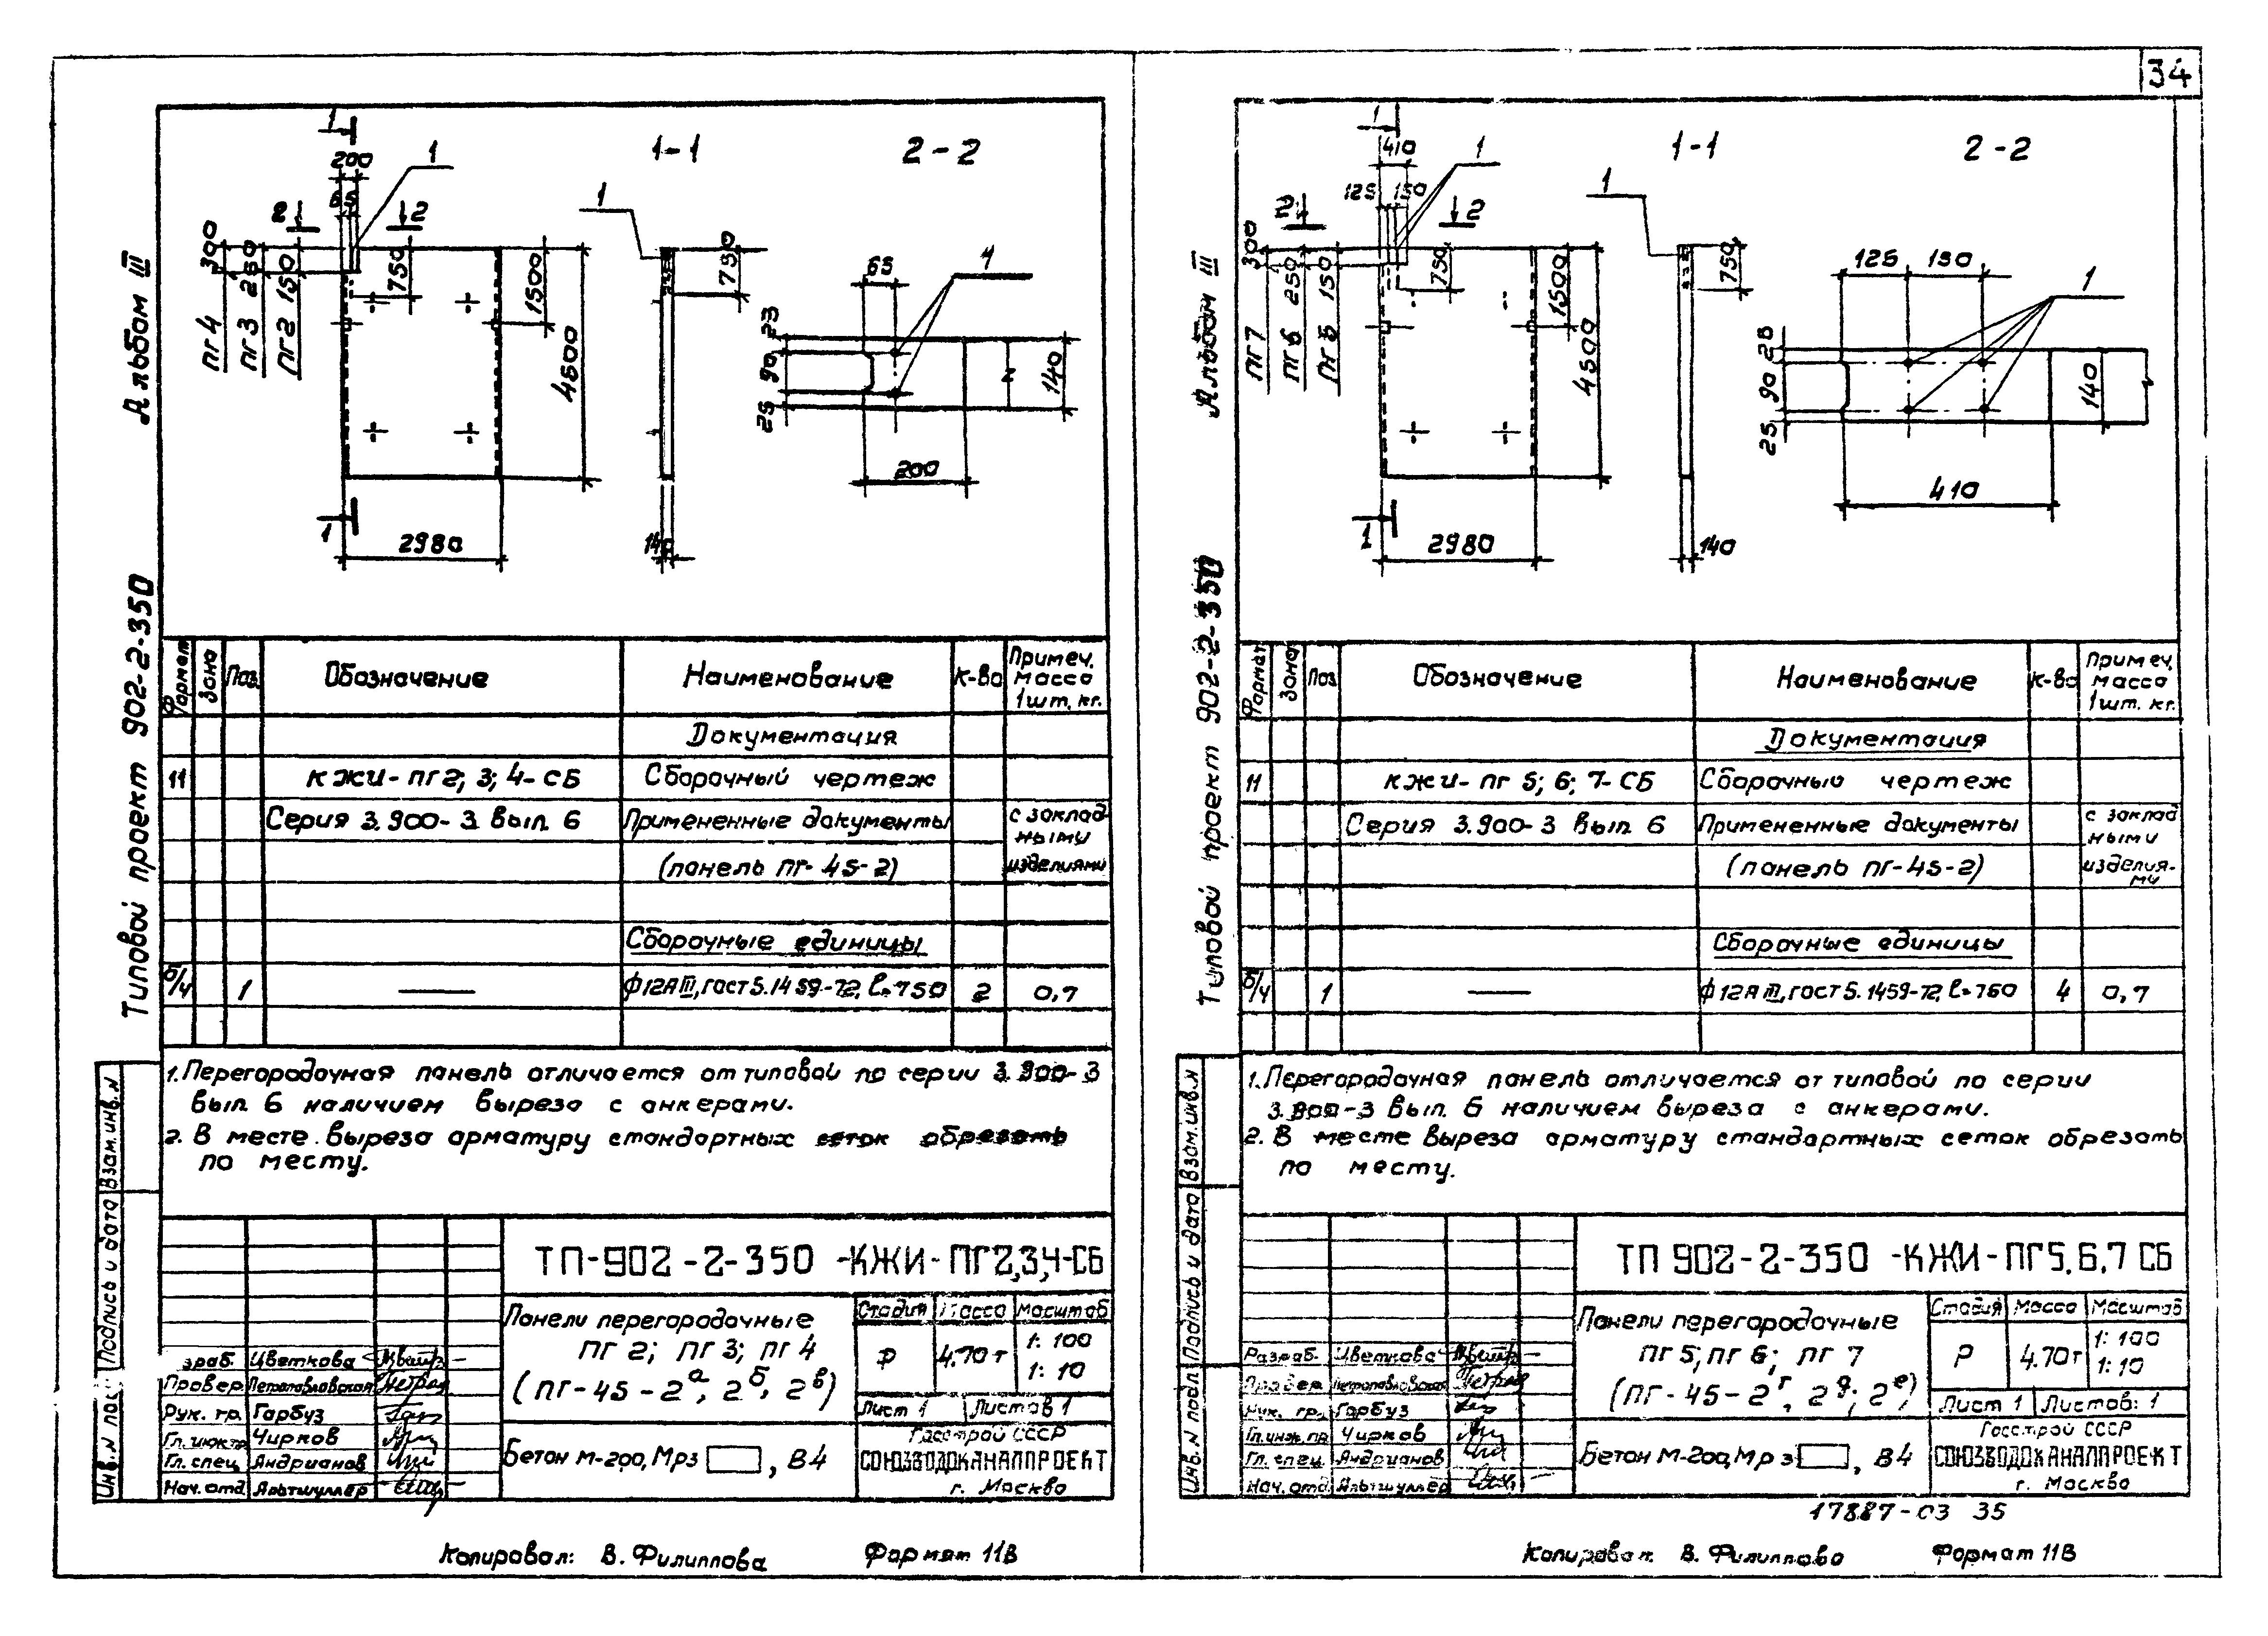 34
Альбом III
Типовой проект 902-2-350
1
200
65
1
2
2
300
250
150
750
1500
4500
пг 4
пг 3
пг 2
1
2980
1-1
1
750
140
2-2
65
1
90
25
140
200
Формат
Зона
Поз.
Обозначение
Наименование
К-во
Примеч. масса 1шт. кг.
Документация
11 КЖИ-ПГ2; 3; 4-СБ Сборочный чертеж
Серия 3.900-3 вып. 6 Примененные документы с заклад-
ными
(панель ПГ-45-2) изделиями
Сборочные единицы
б/ч 1 — ф12АIII, гост 5.1459-72, l=750 2 0,7
1. Перегородочная панель отличается от типовой по серии 3.900-3
вып. 6 наличием выреза с анкерами.
2. В месте выреза арматуру стандартных сеток обрезать
по месту.
Взам. инв. N
Подпись и дата
ТП-902-2-350-КЖИ-ПГ2,3,4-СБ
Панели перегородочные
ПГ 2; ПГ 3; ПГ 4
(ПГ-45-2а; 2б; 2в)
Стадия Масса Масштаб
Р 4.70т 1:100
1:10
Лист 1 Листов 1
зраб. Цветкова
Провер. Петропавловская
Рук. гр. Гарбуз
Гл. инж. пр. Чирков
Гл. спец. Андрианов
Нач. отд. Альтшуллер
Бетон М-200, Мрз , В4
Госстрой СССР
СОЮЗВОДОКАНАЛПРОЕКТ
г. Москва
Копировал: В. Филиппова Формат 11В
Альбом III
Типовой проект 902-2-350
1
410
125 150
1
2
2
300
250
150
750
1500
4500
пг 7
пг 6
пг 5
1
2980
1-1
1
750
140
2-2
125 150
1
90
25
140
410
Формат
Зона
Поз
Обозначение
Наименование
К-во
Примеч. масса 1шт. кг.
Документация
11 КЖИ-ПГ 5; 6; 7-СБ Сборочный чертеж
Серия 3.900-3 вып. 6 Примененные документы с заклад
ными
(панель ПГ-45-2) изделия-
ми
Сборочные единицы
б/ч 1 — ф12АIII, гост 5.1459-72, l=750 4 0,7
1. Перегородочная панель отличается от типовой по серии
3.900-3 вып. 6 наличием выреза с анкерами.
2. В месте выреза арматуру стандартных сеток обрезать
по месту.
Взам. инв. N
Подпись и дата
Инв. N подл.
ТП 902-2-350-КЖИ-ПГ5,6,7 СБ
Панели перегородочные
ПГ 5; ПГ 6; ПГ 7
(ПГ-45-2г, 2д; 2е)
Стадия Масса Масштаб
Р 4.70т 1:100
1:10
Лист 1 Листов: 1
Разраб. Цветкова
Провер. Петропавловская
Рук. гр. Гарбуз
Гл. инж. пр. Чирков
Гл. спец. Андрианов
Нач. отд. Альтшуллер
Бетон М-200, Мрз , В4
Госстрой СССР
СОЮЗВОДОКАНАЛПРОЕКТ
г. Москва
17887-03 35
Копировал: В. Филиппова Формат 11В